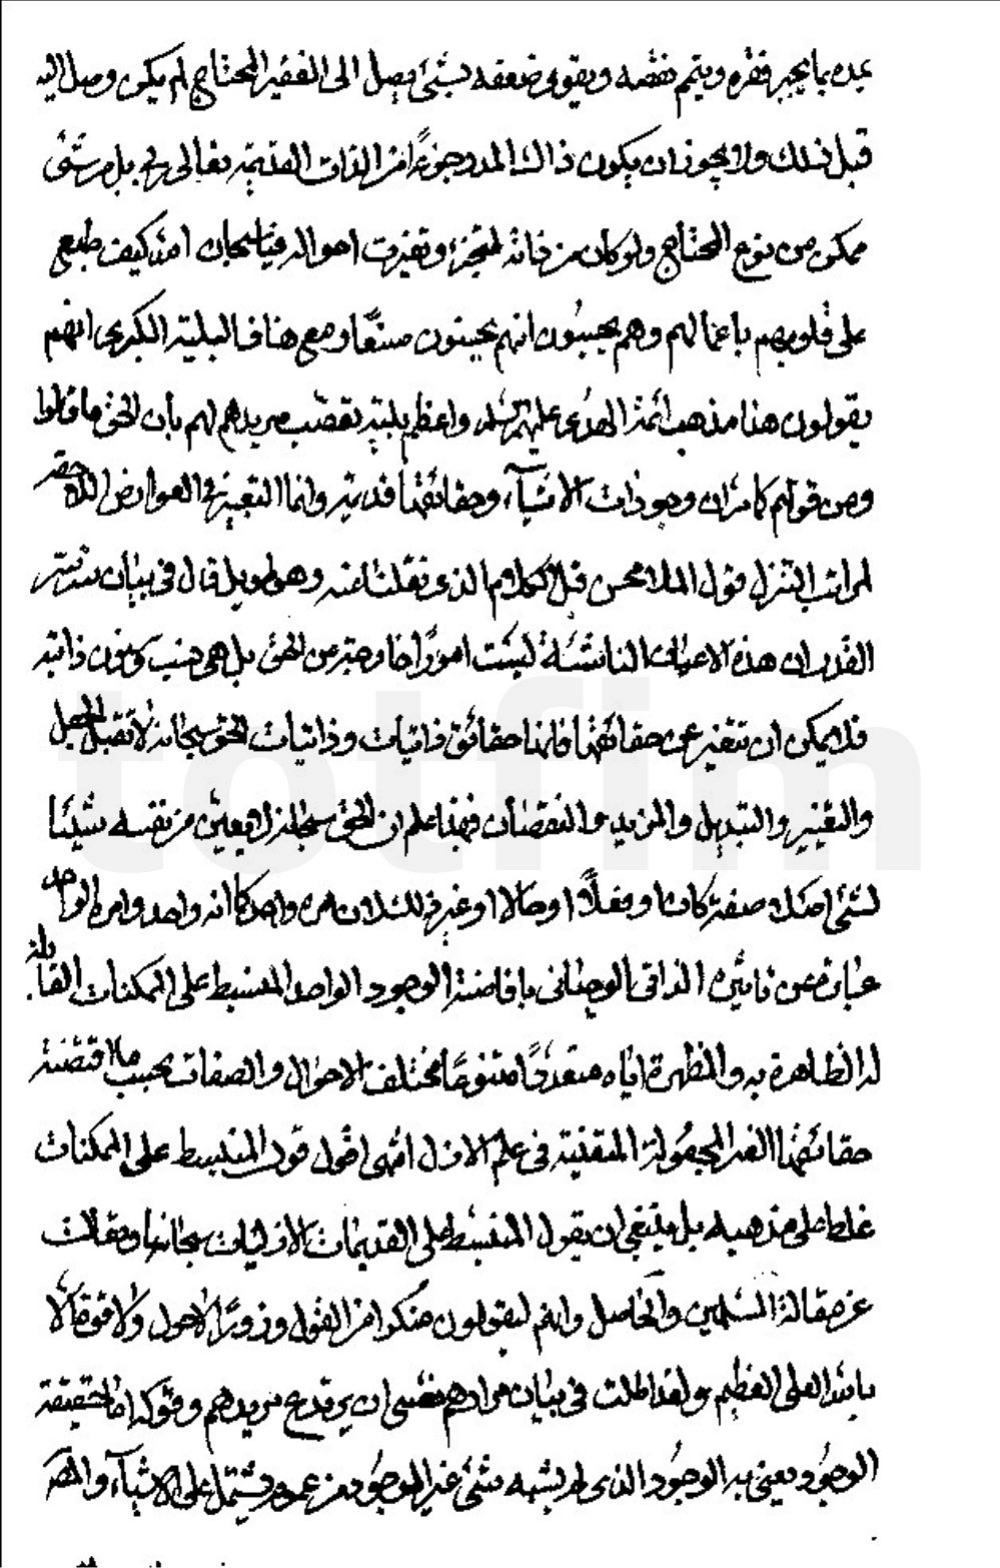 يمده بما يجبر فقره ويتم نقصه ويقوى ضعفه بشئ يصل الى الفقير المحتاج لم يكن وصل اليه
قبل ذلك ولا يجوز ان يكون ذلك المدد جزءًا من الذات القديمة تعالى ربى بل من شئ
ممكن من نوع المحتاج ولو كان من ذاته لتجزء وتغيرت احواله فيا سبحان الله كيف طبع
على قلوبهم باعمالهم وهم يحسبون انهم يحسنون صنعًا ومع هذا فالبلية الكبرى انهم
يقولون هذا مذهب ائمة الهدى عليهم السلام واعظم بلية تعصب مريدهم لهم بأن الحق ما قالوا
ومن قولهم كما مر ان وجودات الاشيآء وحقائقها قديمة وانما التغير فى العوارض اللاحقة
لمراتب التنزل قول الملا محسن قبل الكلام الذى نقلت عنه وهو طويل قال فى بيان سر سر
القدر ان هذه الاعيان الثابتة ليست امورًا خارجة عن الحق بل هى نسب وشؤن ذاتية
فلا يمكن ان تتغير عن حقائقها فانها حقائق ذاتيات وذاتيات الحق سبحانه لا تقبل الجعل
والتغيير والتبديل والمزيد والنقصان فبهذا علم ان الحق سبحانه لا يعين من نفسه شيئا
لشئ اصلا صفة كان او فعلًا او حالا او غير ذلك لان امره واحد كما انه واحد وامره الواحد
عبارة عن تأثيره الذاتى الوحدانى بافاضة الوجود الواحد المنبسط على الممكنات القابلة
له الظاهرة به والمظهرة اياه متعددًا متنوعًا مختلف الاحوال والصفات بحسب ما اقتضته
حقائقها الغير المجعولة المتعينة فى علم الازل انتهى اقول قوله المنبسط على الممكنات
غلط على مذهبه بل ينبغى ان يقول المنبسط على القديمات الازليات سبحانه وتعالى
عن مقالة المسلمين والحاصل وانهم ليقولون منكرا من القول وزورًا ولا حول ولا قوة الا
بالله العلى العظيم ولقد اطلت فى بيان مرادهم عسى ان يرتدع مريدهم وقوله اما حقيقة
الوجود يعنى به الوجود الذى لم يشبه شئ غير الوجود من عموم يشتمل على الاشيآء والخصر